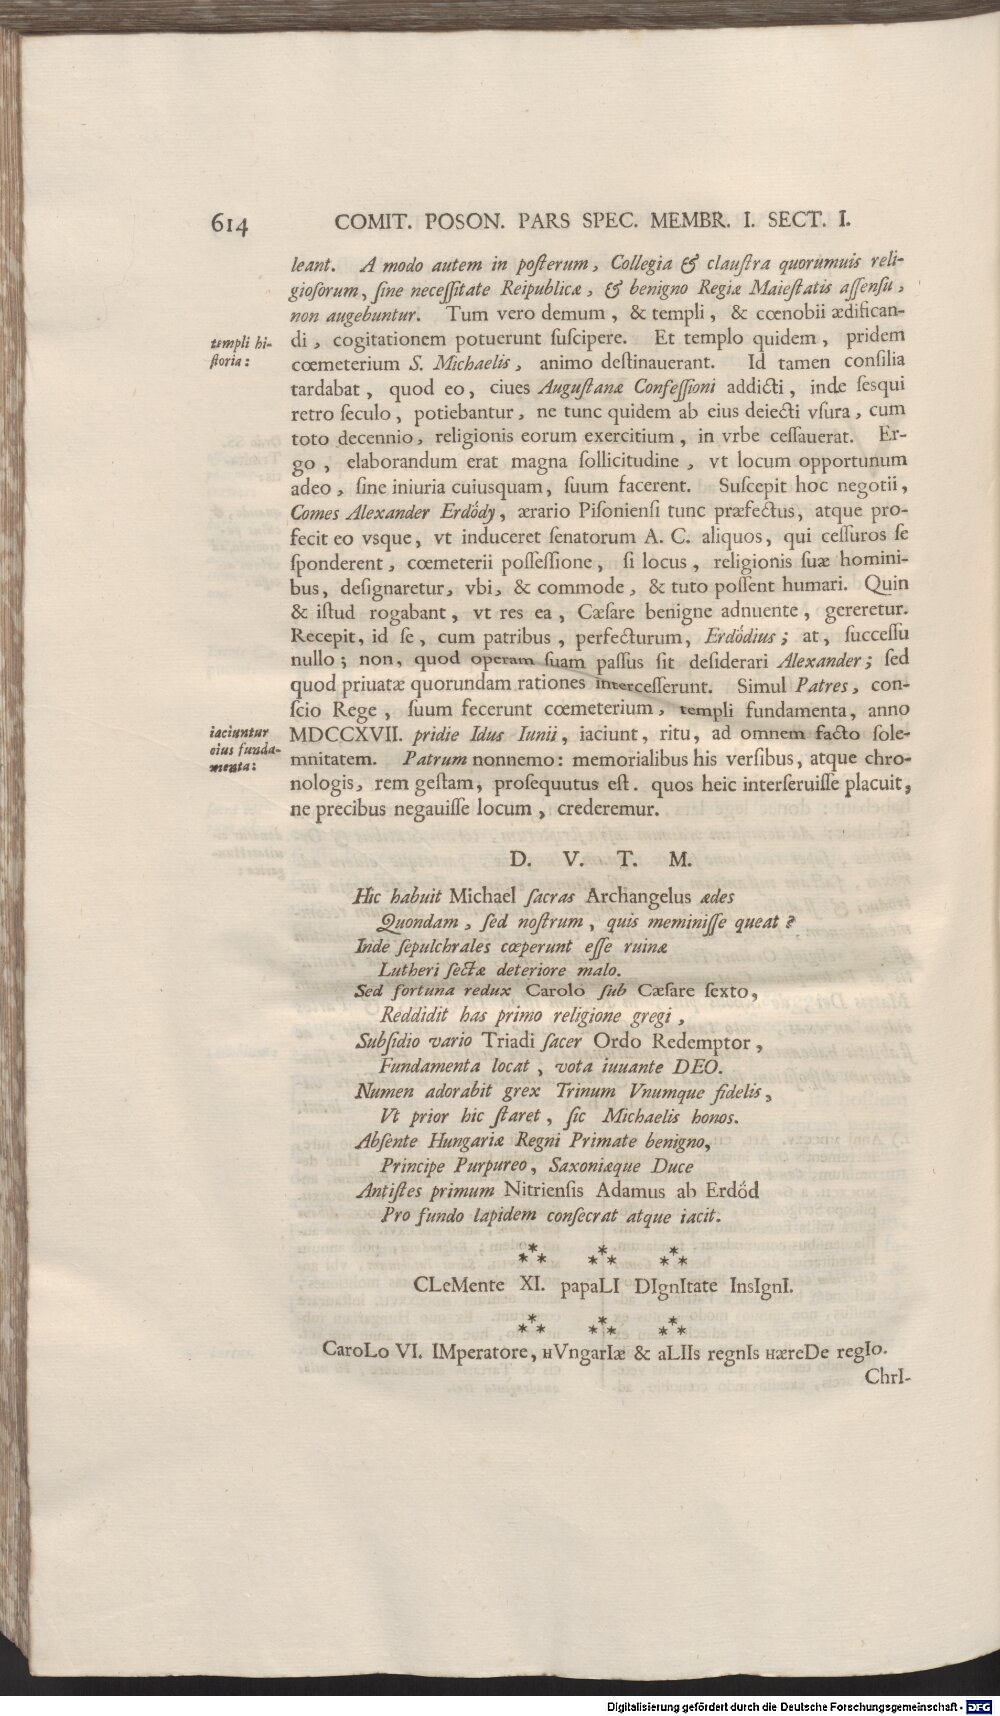 614 COMIT. POSON. PARS SPEC. MEMBR. I. SECT. I.
leant. A modo autem in poſterum, Collegia & clauſtra quorumuis reli-
gioſorum, ſine neceſſitate Reipublicæ, & benigno Regiæ Maieſtatis aſſenſu,
non augebuntur. Tum vero demum, & templi, & cœnobii ædifican-
templi hi-
ſtoria:
di, cogitationem potuerunt ſuſcipere. Et templo quidem, pridem
cœmeterium S. Michaelis, animo deſtinauerant. Id tamen conſilia
tardabat, quod eo, ciues Auguſtanæ Confeſſioni addicti, inde ſesqui
retro ſeculo, potiebantur, ne tunc quidem ab eius deiecti vſura, cum
toto decennio, religionis eorum exercitium, in vrbe ceſſauerat. Er-
go, elaborandum erat magna ſollicitudine, vt locum opportunum
adeo, ſine iniuria cuiusquam, ſuum facerent. Suſcepit hoc negotii,
Comes Alexander Erdődy, ærario Piſonienſi tunc præfectus, atque pro-
fecit eo vsque, vt induceret ſenatorum A. C. aliquos, qui ceſſuros ſe
ſponderent, cœmeterii poſſeſſione, ſi locus, religionis ſuæ homini-
bus, deſignaretur, vbi, & commode, & tuto poſſent humari. Quin
& iſtud rogabant, vt res ea, Cæſare benigne adnuente, gereretur.
Recepit, id ſe, cum patribus, perfecturum, Erdődius; at, ſucceſſu
nullo; non, quod operam ſuam paſſus ſit deſiderari Alexander; ſed
quod priuatæ quorundam rationes interceſſerunt. Simul Patres, con-
ſcio Rege, ſuum fecerunt cœmeterium, templi fundamenta, anno
iaciuntur
eius funda-
menta:
MDCCXVII. pridie Idus Iunii, iaciunt, ritu, ad omnem facto ſole-
mnitatem. Patrum nonnemo: memorialibus his verſibus, atque chro-
nologis, rem geſtam, proſequutus eſt. quos heic interſeruiſſe placuit,
ne precibus negauiſſe locum, crederemur.
D. V. T. M.
Hic habuit Michael ſacras Archangelus ædes
Quondam, ſed noſtrum, quis meminiſſe queat?
Inde ſepulchrales cœperunt eſſe ruinæ
Lutheri ſectæ deteriore malo.
Sed fortuna redux Carolo ſub Cæſare ſexto,
Reddidit has primo religione gregi,
Subſidio vario Triadi ſacer Ordo Redemptor,
Fundamenta locat, vota iuuante DEO.
Numen adorabit grex Trinum Vnumque fidelis,
Vt prior hic ſtaret, ſic Michaelis honos.
Abſente Hungariæ Regni Primate benigno,
Principe Purpureo, Saxoniæque Duce
Antiſtes primum Nitrienſis Adamus ab Erdőd
Pro fundo lapidem conſecrat atque iacit.
*** *** ***
CLeMente XI. papaLI DIgnItate InsIgnI.
*** *** ***
CaroLo VI. IMperatore, HVngarIæ & aLIIs regnIs HæreDe regIo.
ChrI-
Digitalisierung gefördert durch die Deutsche Forschungsgemeinschaft - DFG